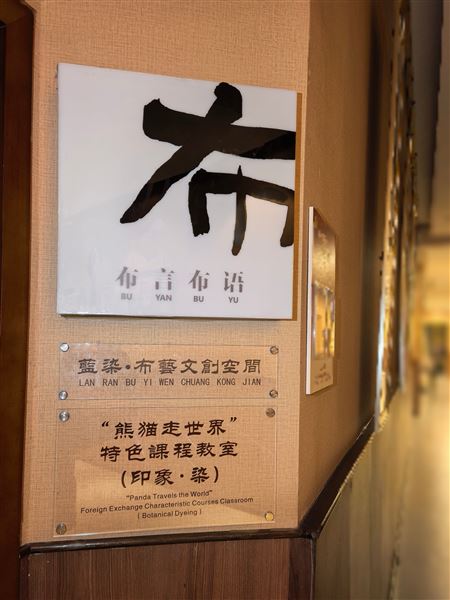 布
布言布语
BU YAN BU YU
藍染·布藝文創空間
LAN RAN BU YI WEN CHUANG KONG JIAN
“熊猫走世界”
特色課程教室
(印象·染)
"Panda Travels the World"
Foreign Exchange Characteristic Courses Classroom
( Botanical Dyeing )